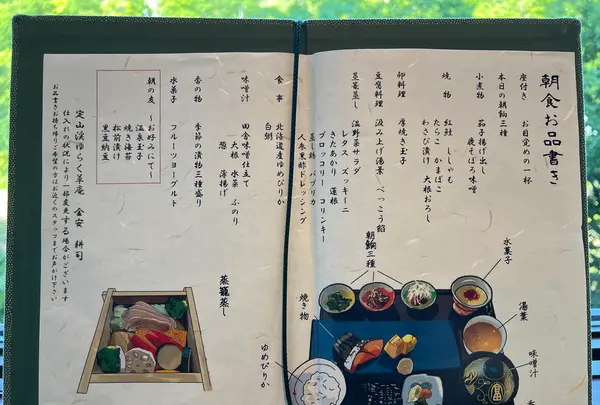 朝食お品書き
座付き　お目覚めの一杯
本日の朝餉三種
小煮物　茄子揚げ出し
鹿そぼろ味噌
焼物　紅鮭　ししゃも
たらこ　かまぼこ
わさび漬け　大根おろし
卵料理　厚焼き玉子
豆腐料理　汲み上げ湯葉　べっこう餡
蒸籠蒸し　温野菜サラダ
レタス・ズッキーニ
きたあかり　蓮根
ブロッコリー・コリンキー
パプリカ
人参黒酢ドレッシング
食事　北海道産ゆめぴりか
白粥
味噌汁　田舎味噌仕立て
大根　水菜　ふのり
葱　油揚げ
香の物　季節の漬物三種盛り
水菓子　フルーツヨーグルト
朝の友　～お好みにて～
温泉玉子
焼き海苔
松前漬け
黒豆納豆
定山渓ゆらく草庵　金安　耕司
仕入れの状況により一部変更する場合がございます
お品書きお持ち帰りご希望の方はお近くのスタッフまでお声がけ下さい
朝餉三種
水菓子
湯葉
味噌汁
焼き物
ゆめぴりか
蒸籠蒸し